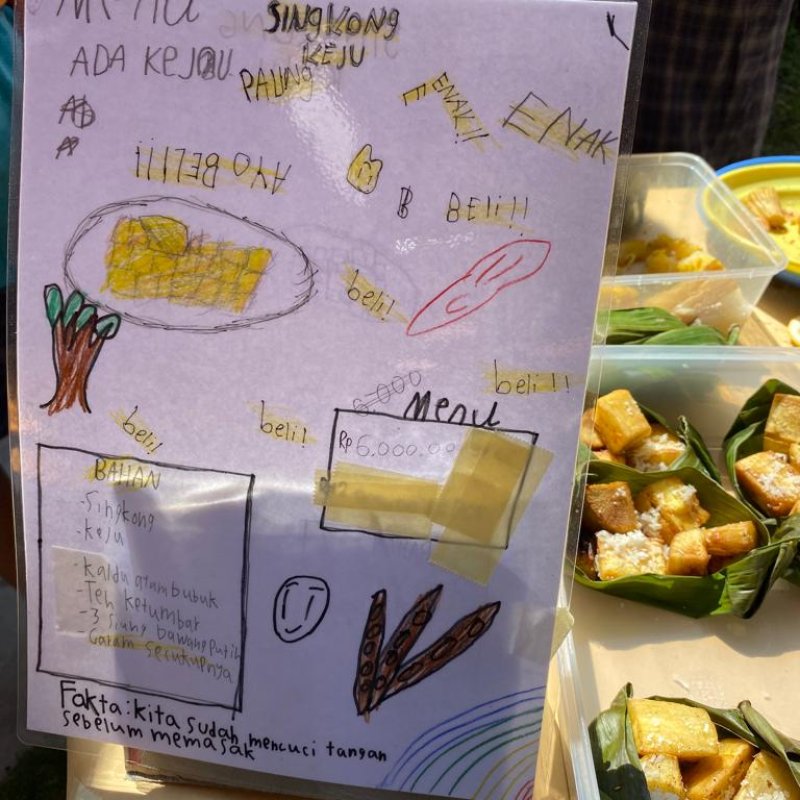 Menu
SINGKONG
KEJU
ADA KEJOU
PALING
ENAK!!
ENAK
AYO BELI!!
B BELi!!
beli!
beli!!
6.000
Menu
Rp 6.000.00
beli!
beli!
BAHAN
-Singkong
-Keju
-Kaldu ayam bubuk
-Teh ketumbar
-3 Siung bawang putih
-Garam secukupnya
Fakta: kita sudah mencuci tangan
sebelum memasak